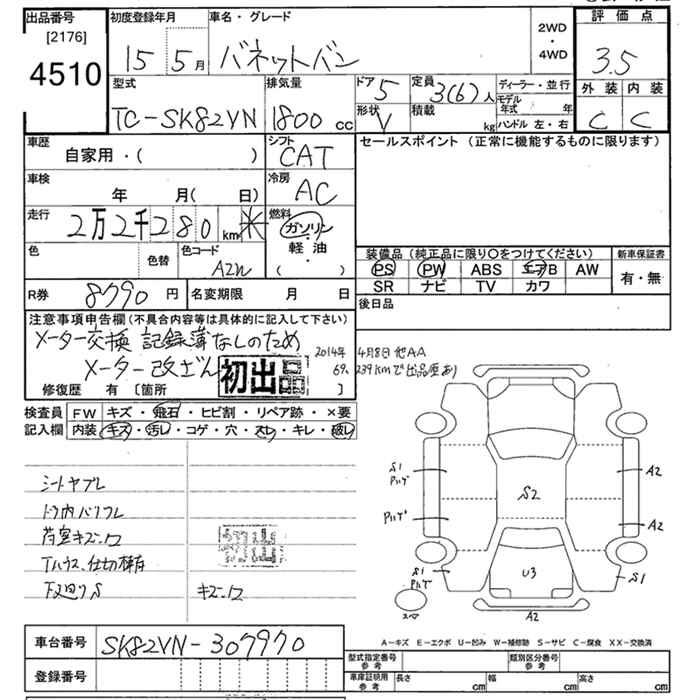 出品番号
[2176]
4510
初度登録年月
15 5月
車名・グレード
バネットバン
2WD
・
4WD
評価点
3.5
外装 内装
C C
型式
TC-SK82VN
排気量
1800 cc
ドア 5
形状 V
定員 3(6)人
積載 kg
ディーラー・並行
モデル年式 年
ハンドル 左・右
車歴
自家用・( )
シフト
CAT
セールスポイント (正常に機能するものに限ります)
車検
年 月( 日)
冷房
AC
走行
2万2千280km
燃料
ガソリン
軽油
( ・ )
色
色替
色コード
A2W
装備品 (純正品に限り○をつけてください)
新車保証書
PS PW ABS エアB AW
有・無
SR ナビ TV カワ
R券 8790円
名変期限 月 日
後日品
注意事項申告欄(不具合内容等は具体的に記入して下さい)
メーター交換 記録簿なしのため
メーター改ざん
初出品
2014年 4月8日他AA
69,239kmで出品歴あり
修復歴 有 [箇所 ]
検査員記入欄
FW キズ・飛石・ヒビ割・リペア跡・×要
内装 キズ・汚レ・コゲ・穴・スレ・キレ・破レ
シートヤブレ
ドア内バリフレ
荷室キズ凹
Tハウス、仕切棒有
下廻りS キズ凹
初出
S1
A2
S2
A2
U3
S1
S1
A2
A−キズ E−エクボ U−凹み W−補修跡 S−サビ C−腐食 XX−交換済
車台番号 SK82VN-307970
登録番号
型式指定番号
参考
類別区分番号
参考
車庫証明用
参考
長さ cm
幅 cm
高さ cm